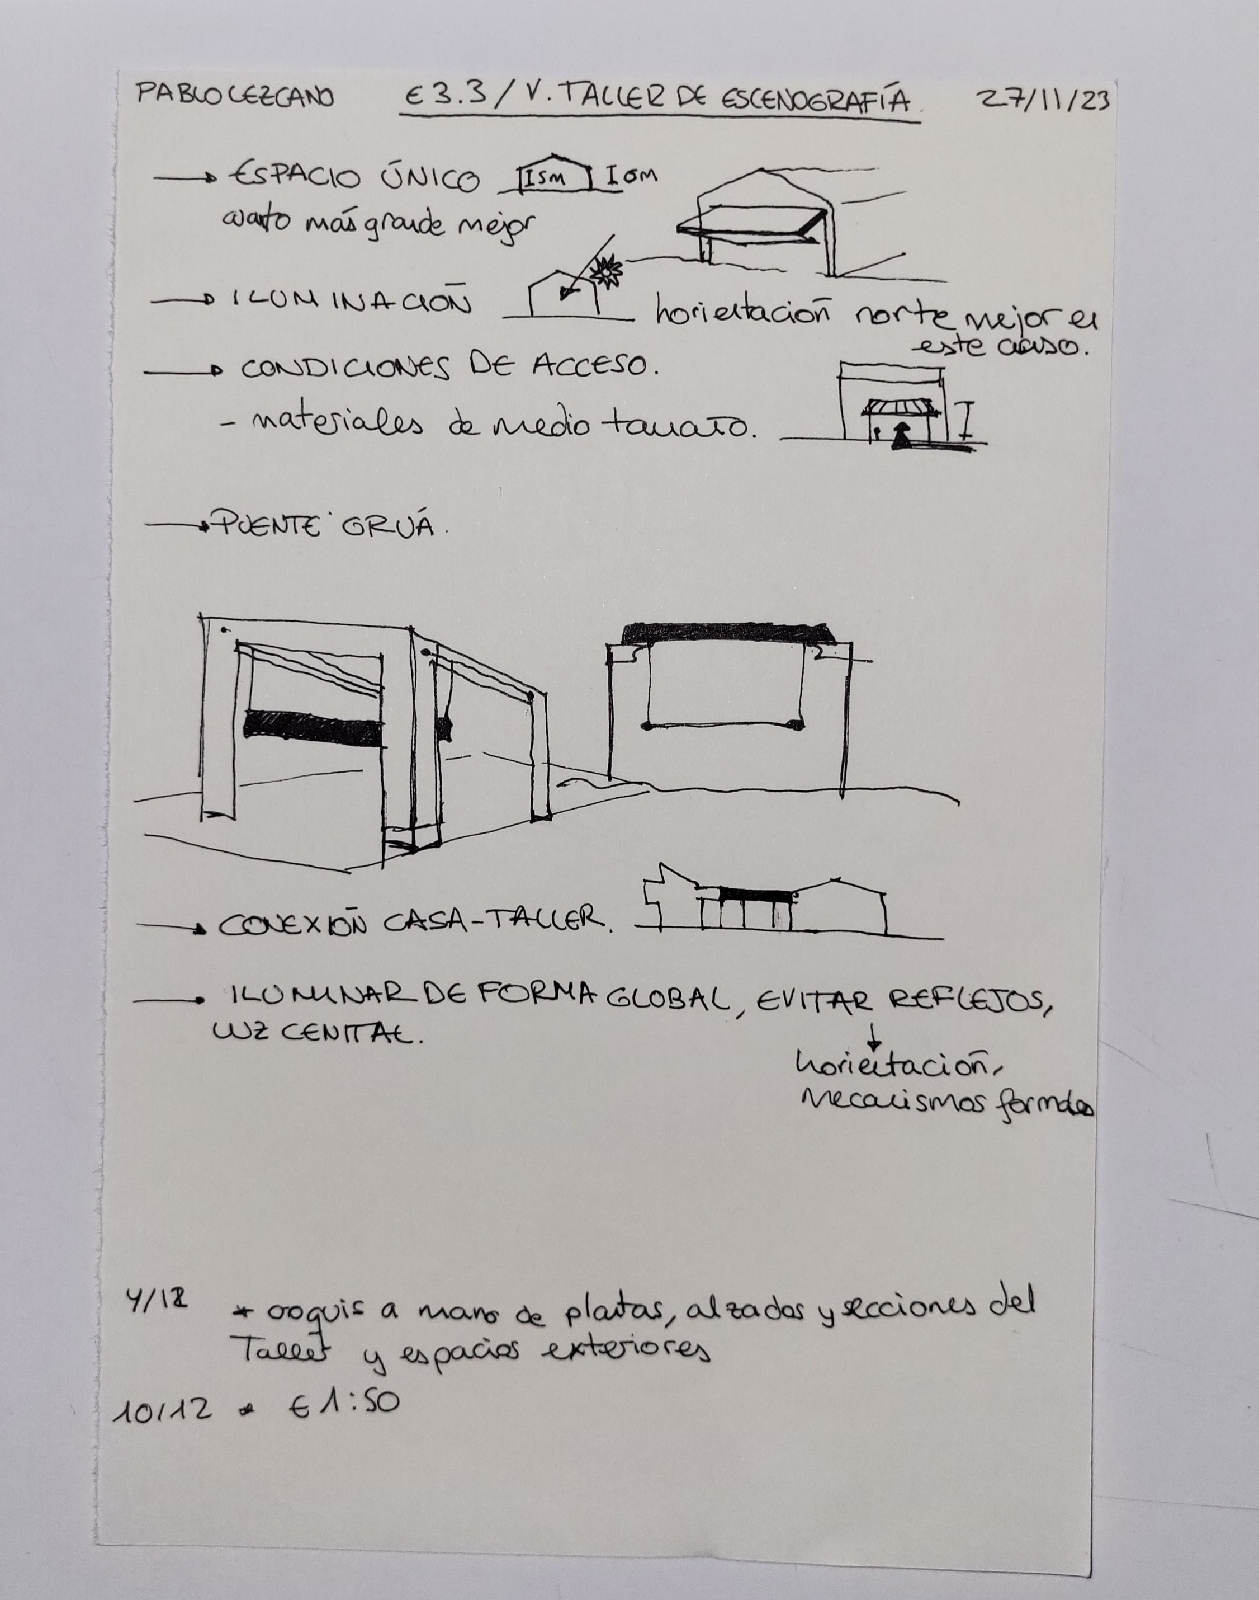 PABLO LEZCANO € 3.3 / V. TALLER DE ESCENOGRAFÍA 27/11/23
ESPACIO ÚNICO I5M I6M
cuanto más grande mejor
ILUMINACIOÑ
horientacioñ norte mejor en
este caso.
CONDICIONES DE ACCESO.
- materiales de medio tamaño.
PUENTE GRUÁ.
CONEXIOÑ CASA-TALLER.
ILUMINAR DE FORMA GLOBAL, EVITAR REFLEJOS,
LUZ CENITAL.
horientacioñ,
mecanismos formales
4/12 * croquis a mano de plantas, alzados y secciones del
Taller y espacios exteriores
10/12 * € 1:50